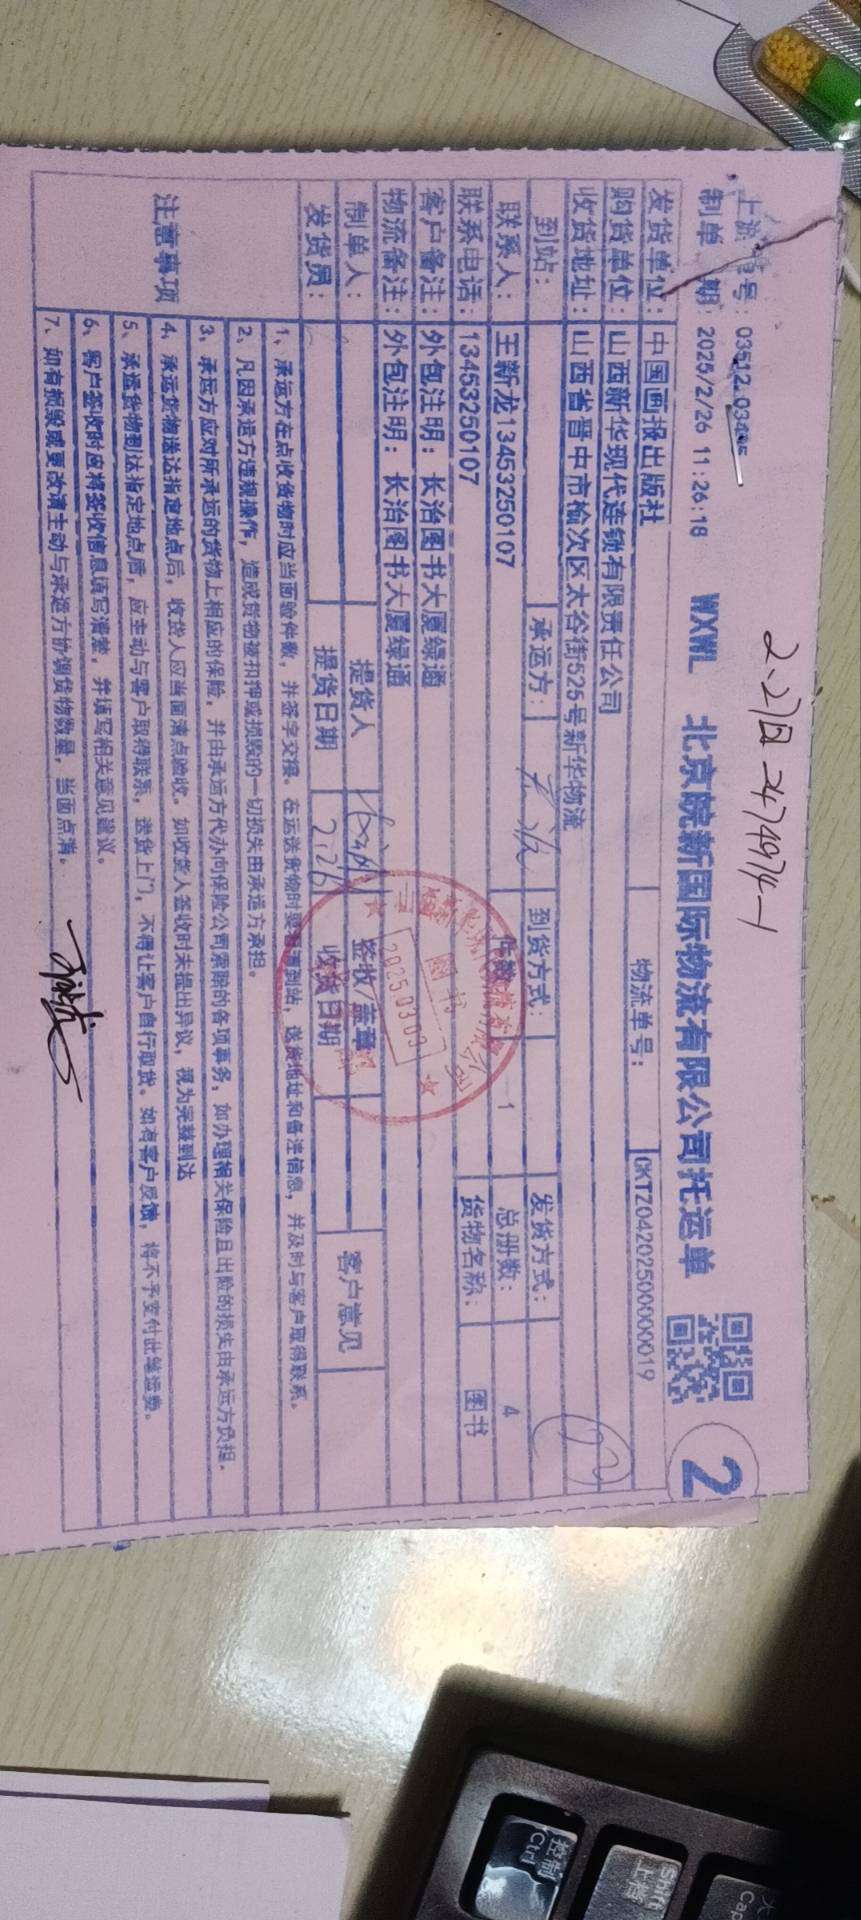 2.27日 2474974-1
号：03512 03495
WXWL 北京皖新国际物流有限公司托运单
2
制单 期：2025/2/26 11:26:18
发货单位：中国画报出版社
物流单号：CKTZ04202500000019
购货单位：山西新华现代连锁有限责任公司
收货地址：山西省晋中市榆次区太谷街525号新华物流
到站：
承运方：
到货方式：
发货方式：
联系人：王新龙13453250107
件数 1
总册数：4
联系电话：13453250107
货物名称：图书
客户备注：外包注明：长治图书大厦绿通
物流备注：外包注明：长治图书大厦绿通
制单人：
提货人
签收/盖章
客户意见
发货员：
提货日期 2.26
收货日期
图书
2025 03 03
注意事项
1、承运方在点收货物时应当面验件数，并签字交接。在运送货物时要 到站，送货地址和备注信息，并及时与客户取得联系。
2、凡因承运方违规操作，造成货物被扣押或损毁的一切损失由承运方承担。
3、承运方应对所承运的货物上相应的保险，并由承运方代办向保险公司索赔的各项事务，如办理相关保险且出险的损失由承运方负担。
4、承运货物送达指定地点后，收货人应当面清点验收。如收货人签收时未提出异议，视为完整到达
5、承运货物到达指定地点后，应主动与客户取得联系，送货上门，不得让客户自行取货。如有客户反馈，将不予支付此笔运费。
6、客户签收时应将签收信息填写清楚，并填写相关意见建议。
7、如有损毁或更改请主动与承运方协调货物数量，当面点清。
控制
Ctrl
Shift
上档
Cap